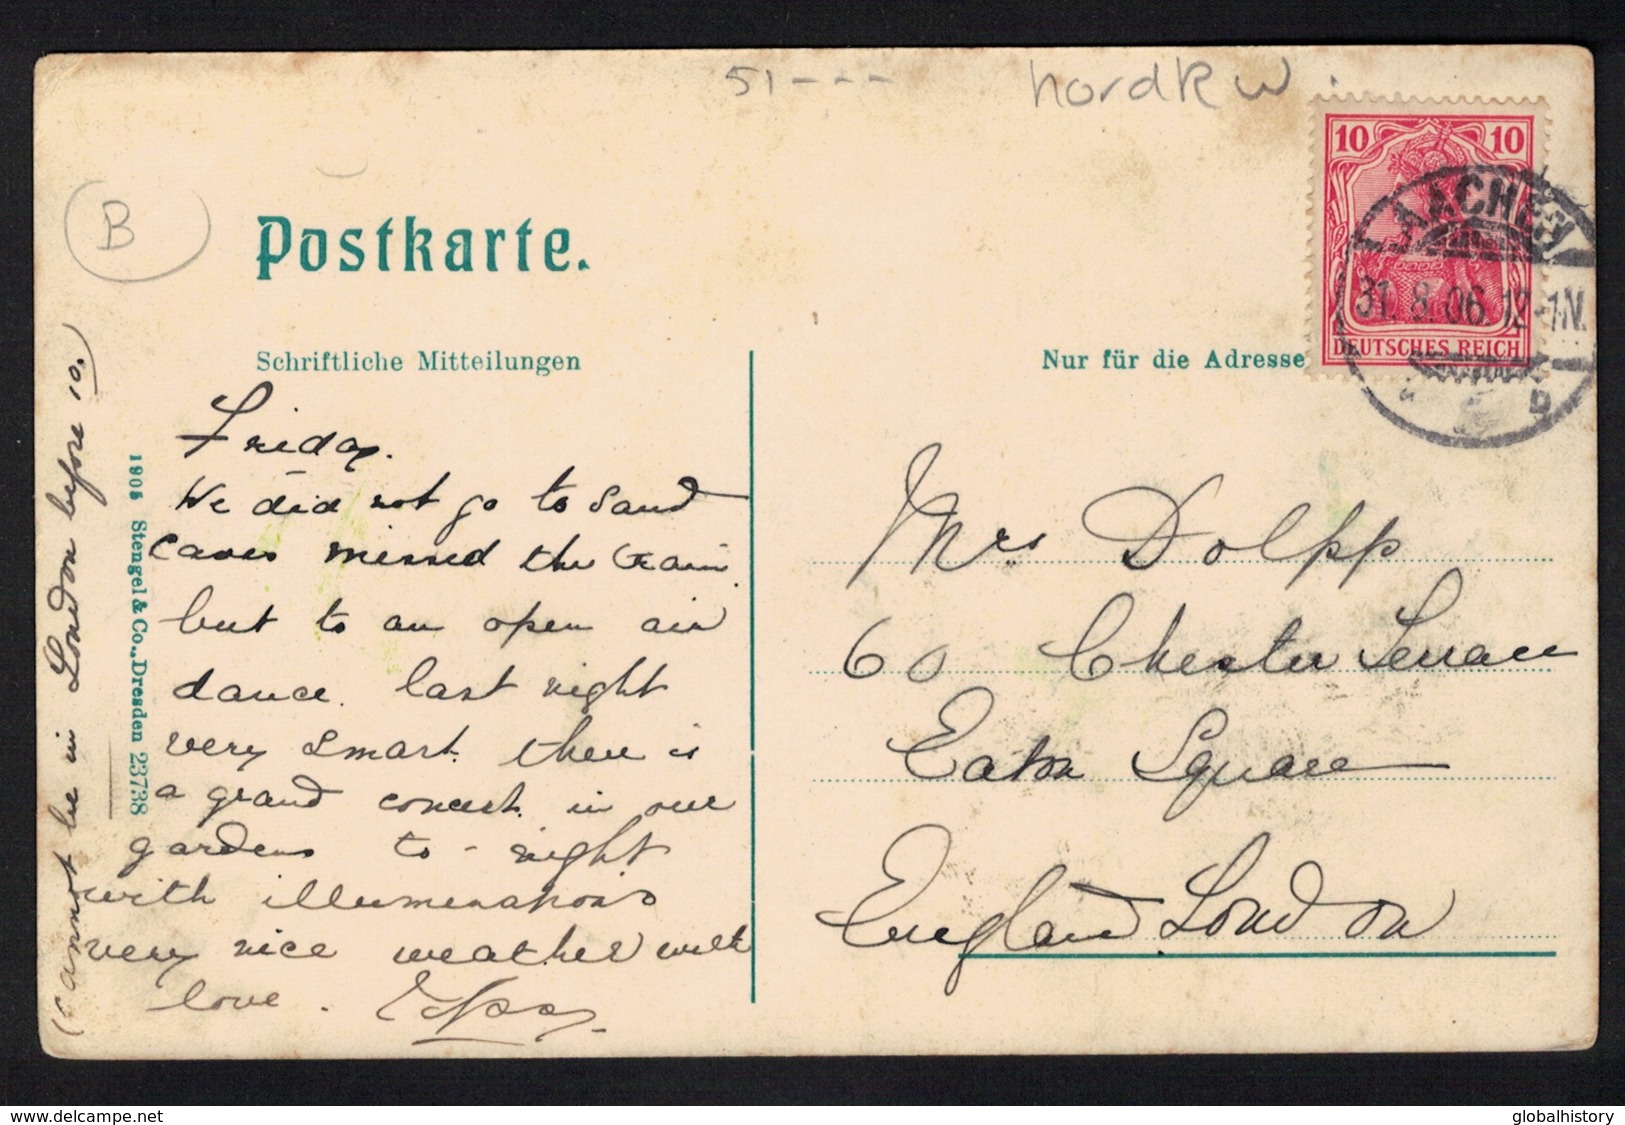 51 - - -
B
Postkarte.
Schriftliche Mitteilungen
Nur für die Adresse
10 10
DEUTSCHES REICH
AACHEN
31. 8. 06. 12-1N.
Friday.
We did not go to Sand
Caves missed the train
but to an open air
dance. last night
very smart. there is
a grand concert. in our
gardens to-night
with illuminations
very nice weather with
love.
(cannot be in London before 10.
1905 Stengel & Co., Dresden 23738
Mrs Dolpp
60 Chester Terrace
Eaton Square
England London
delcampe.net
globalhistory